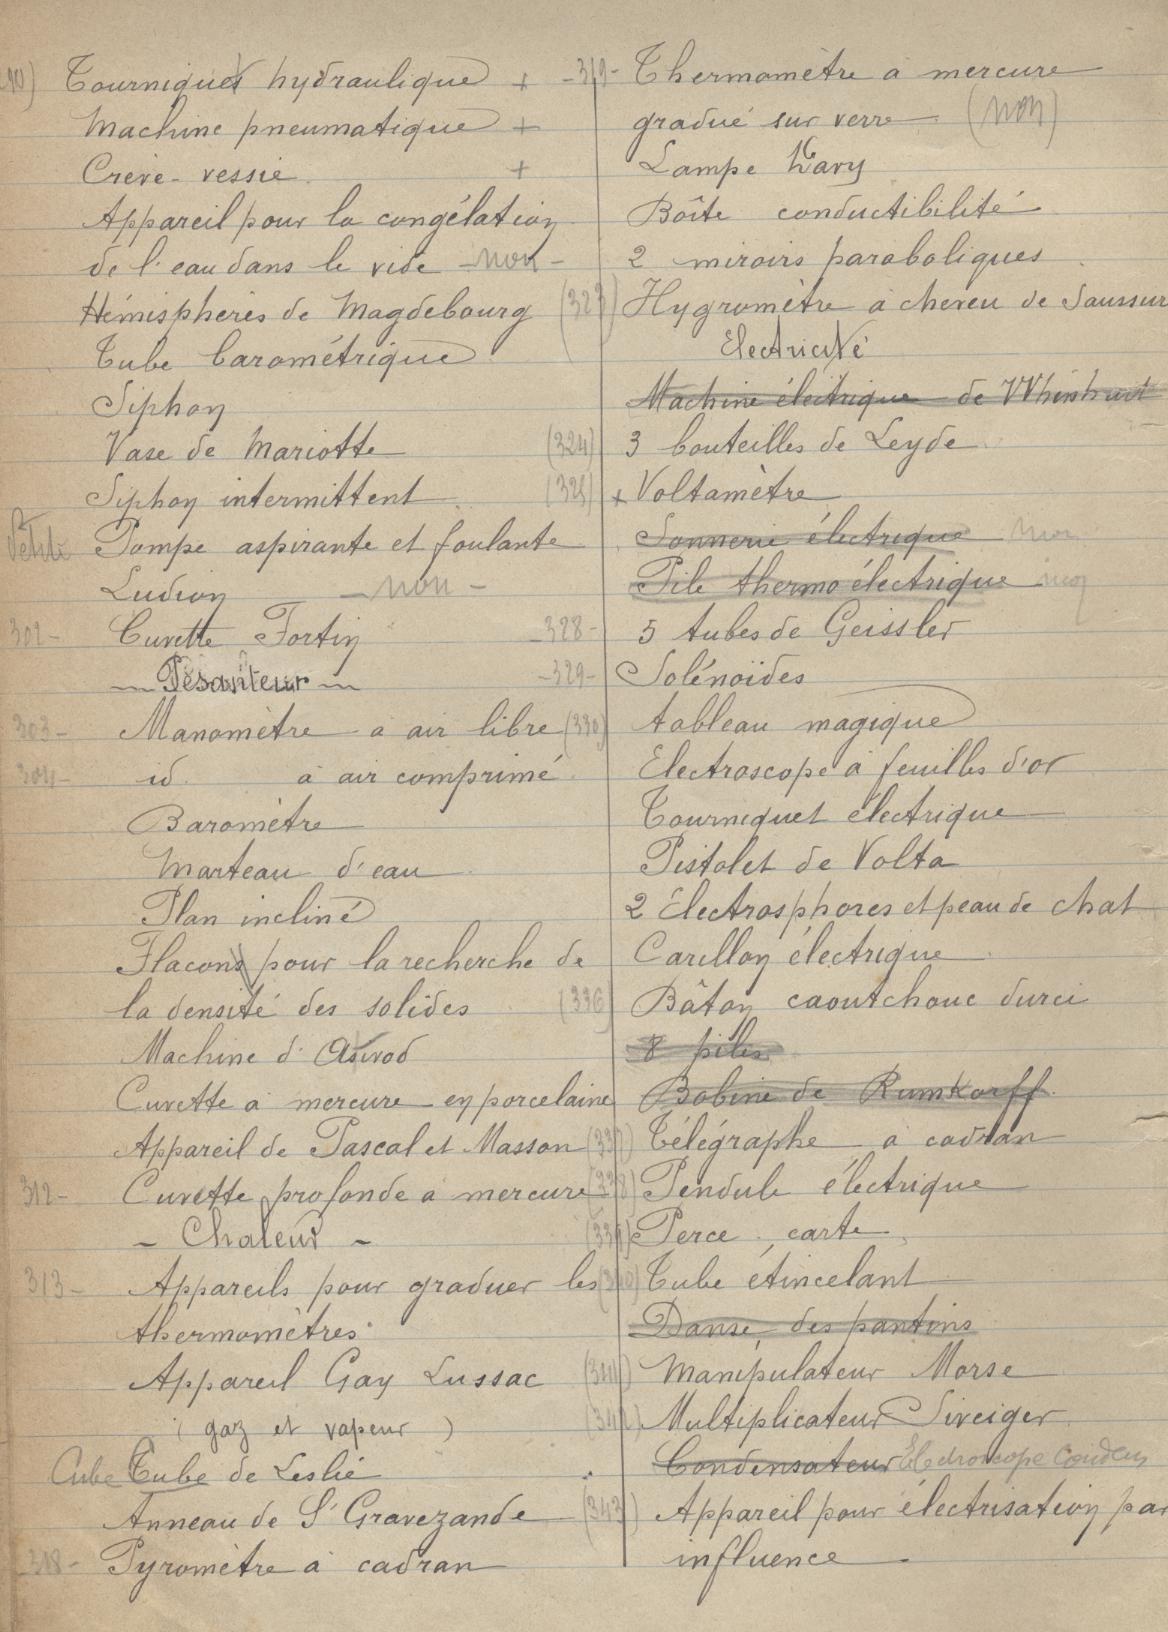 Tourniquet hydraulique +
Machine pneumatique +
Crève-vessie +
Appareil pour la congélation
de l'eau dans le vide - non -
Hémisphères de Magdebourg (323)
Tube barométrique
Siphon
Vase de Mariotte (324)
Siphon intermittent (325)
Petite Pompe aspirante et foulante
Ludion - non -
302- Cuvette Fortin -328-
- Pesanteur - -329-
303- Manomètre à air libre (330)
304- id. à air comprimé
Baromètre
Marteau d'eau
Plan incliné
Flacons pour la recherche de
la densité des solides (336)
Machine d'Atwod
Cuvette à mercure en porcelaine
Appareil de Pascal et Masson (337)
312- Cuvette profonde à mercure (338)
- Chaleur - (339)
313- Appareils pour graduer les (340)
thermomètres
Appareil Gay Lussac (341)
( gaz et vapeur ) (342)
Cube Tube de Leslie
Anneau de S'Gravezande (343)
318- Pyromètre à cadran
-319- Thermomètre à mercure
gradué sur verre (non)
Lampe Davy
Boîte conductibilité
2 miroirs paraboliques
Hygromètre à cheveu de Saussur
Electricité
Machine électrique de Whimhurst
3 bouteilles de Leyde
+ Voltamètre
Sonnerie électrique non
Pile thermo électrique non
5 tubes de Geissler
Solénoïdes
tableau magique
Electroscope à feuilles d'or
Tourniquet électrique
Pistolet de Volta
2 Electrosphores et peau de chat
Carillon électrique
Bâton caoutchouc durci
8 piles
Bobine de Rumkorff
Télégraphe à cadran
Pendule électrique
Perce carte
Tube étincelant
Danse des pantins
Manipulateur Morse
Multiplicateur Siveiger
Condensateur Electroscope Conden
Appareil pour électrisation par
influence